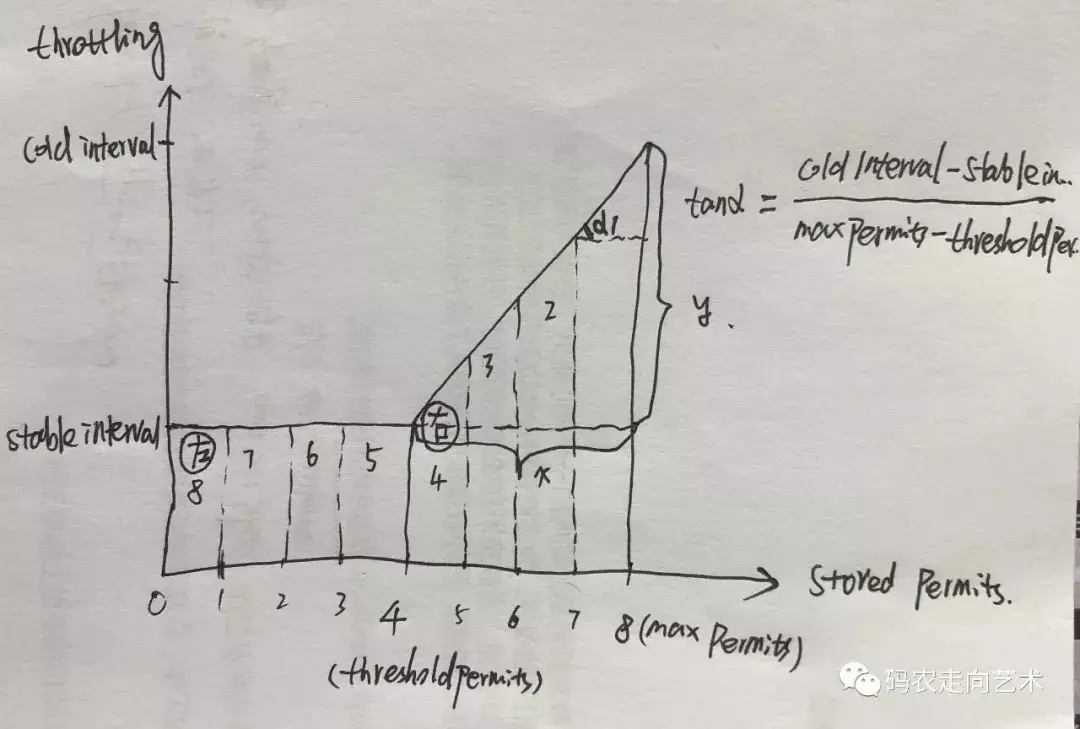 throttling
cold interval
stable interval
左
8
7
6
5
右
4
3
2
α1
x
y.
tanα = cold interval-stable in..
maxpermits-thresholdPer.
0
1
2
3
4
5
6
7
8 (max permits)
(thresholdpermits)
stored permits.
码农走向艺术